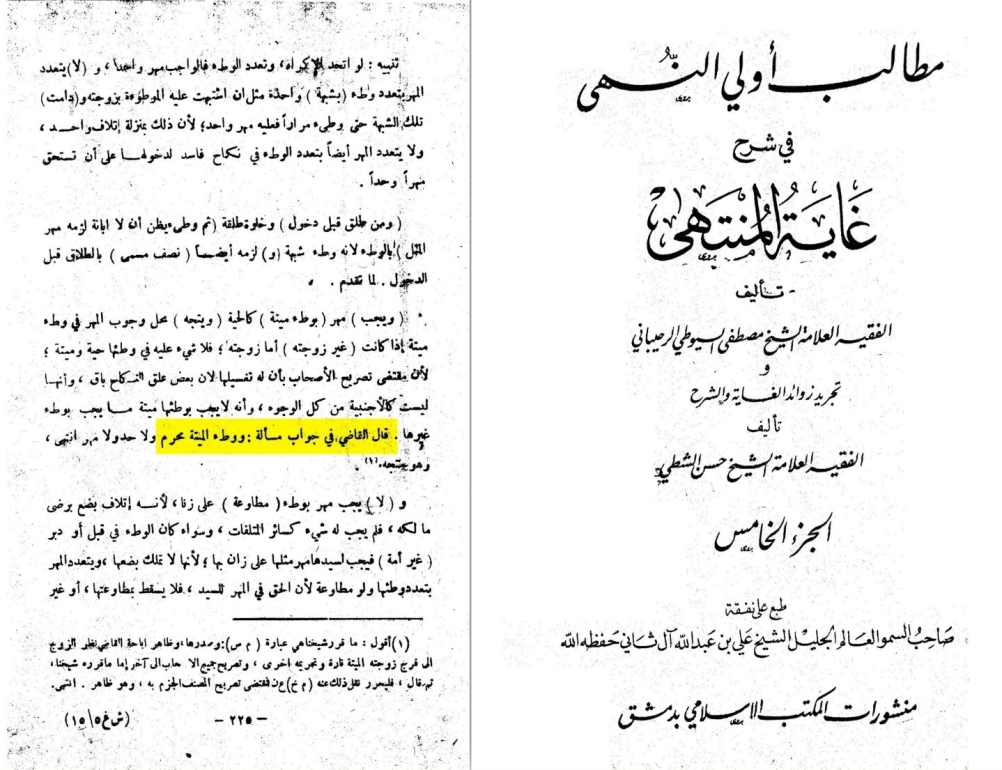 مطالب أولي النهى
في شرح
غاية المنتهى
تأليف
الفقيه العلامة الشيخ مصطفى السيوطي الرحيباني
و
تجريد زوائد الغاية والشرح
تأليف
الفقيه العلامة الشيخ حسن الشطي
الجزء الخامس
طبع على نفقة
صاحب السمو العالم الجليل الشيخ علي بن عبد الله آل ثاني حفظه الله
منشورات المكتب الاسلامي بدمشق
تنبيه : لو اتحد الإكراه، وتعدد الوطء فالواجب مهر واحداً، و (لا) يتعدد
المهر بتعدد وطء (بشبهة) واحدة مثل ان اشتبهت عليه الموطوءة بزوجته و(دامت)
تلك الشبهة حتى وطىء مراراً فعليه مهر واحد؛ لأن ذلك بمنزلة إتلاف واحد ،
ولا يتعدد المهر أيضاً بتعدد الوطء في نكاح فاسد لدخولها على أن تستحق
مهراً وحداً .
( ومن طلق قبل دخول ) وخلوة طلقة (ثم وطىء يظن أن لا ابانة لزمه مهر
المثل ) بالوطء لانه وطء شبهة (و) لزمه أيضاً ( نصف مسمى ) بالطلاق قبل
الدخول . لما تقدم .
( ويجب ) مهر ( بوطء ميتة ) كالحية ( ويتجه ) محل وجوب المهر في وطء
ميتة إذا كانت ( غير زوجته ) أما زوجته ؛ فلا شيء عليه في وطئها حية وميتة ؛
لأن مقتضى تصريح الأصحاب بأن له تغسيلها لان بعض علق النكاح باق ، وأنها
ليست كالأجنبية من كل الوجوه ، وأنه لا يجب بوطئها ميتة ما يجب بوطء
غيرها . قال القاضي في جواب مسألة : ووطء الميتة محرم ولا حد ولا مهر انتهى ،
وهو متجه.(١) .
و ( لا ) يجب مهر بوطء ( مطاوعة ) على زنا ، لأنه إتلاف بضع برضى
مالكه ، فلم يجب له شيء كسائر المتلفات ، وسواء كان الوطء في قبل أو دبر
( غير أمة ) فيجب لسيدها مهر مثلها على زان بها ؛ لأنها لا تملك بضعها ، ويتعدد المهر
بتعدد وطئها ولو مطاوعة لأن الحق في المهر للسيد ، فلا يسقط بمطاوعتها ، أو غير
(١) أقول : ما قرر شيخنا هي عبارة ( م ص ) : وصدرها، وظاهر اباحة القاضي نظر الزوج
الى فرج زوجته الميتة تارة وتحريمه اخرى ، وتصريح جميع الاصحاب الى آخر إما ما قرره شيخنا ،
ثم قال ، فليحرر نقل ذلك عنه ( م خ ) عن مقتضى تصريح المصنف الجزم به ، وهو ظاهر . انتهى.
— ٢٢٥ —
(ش غ ٥/١٥)